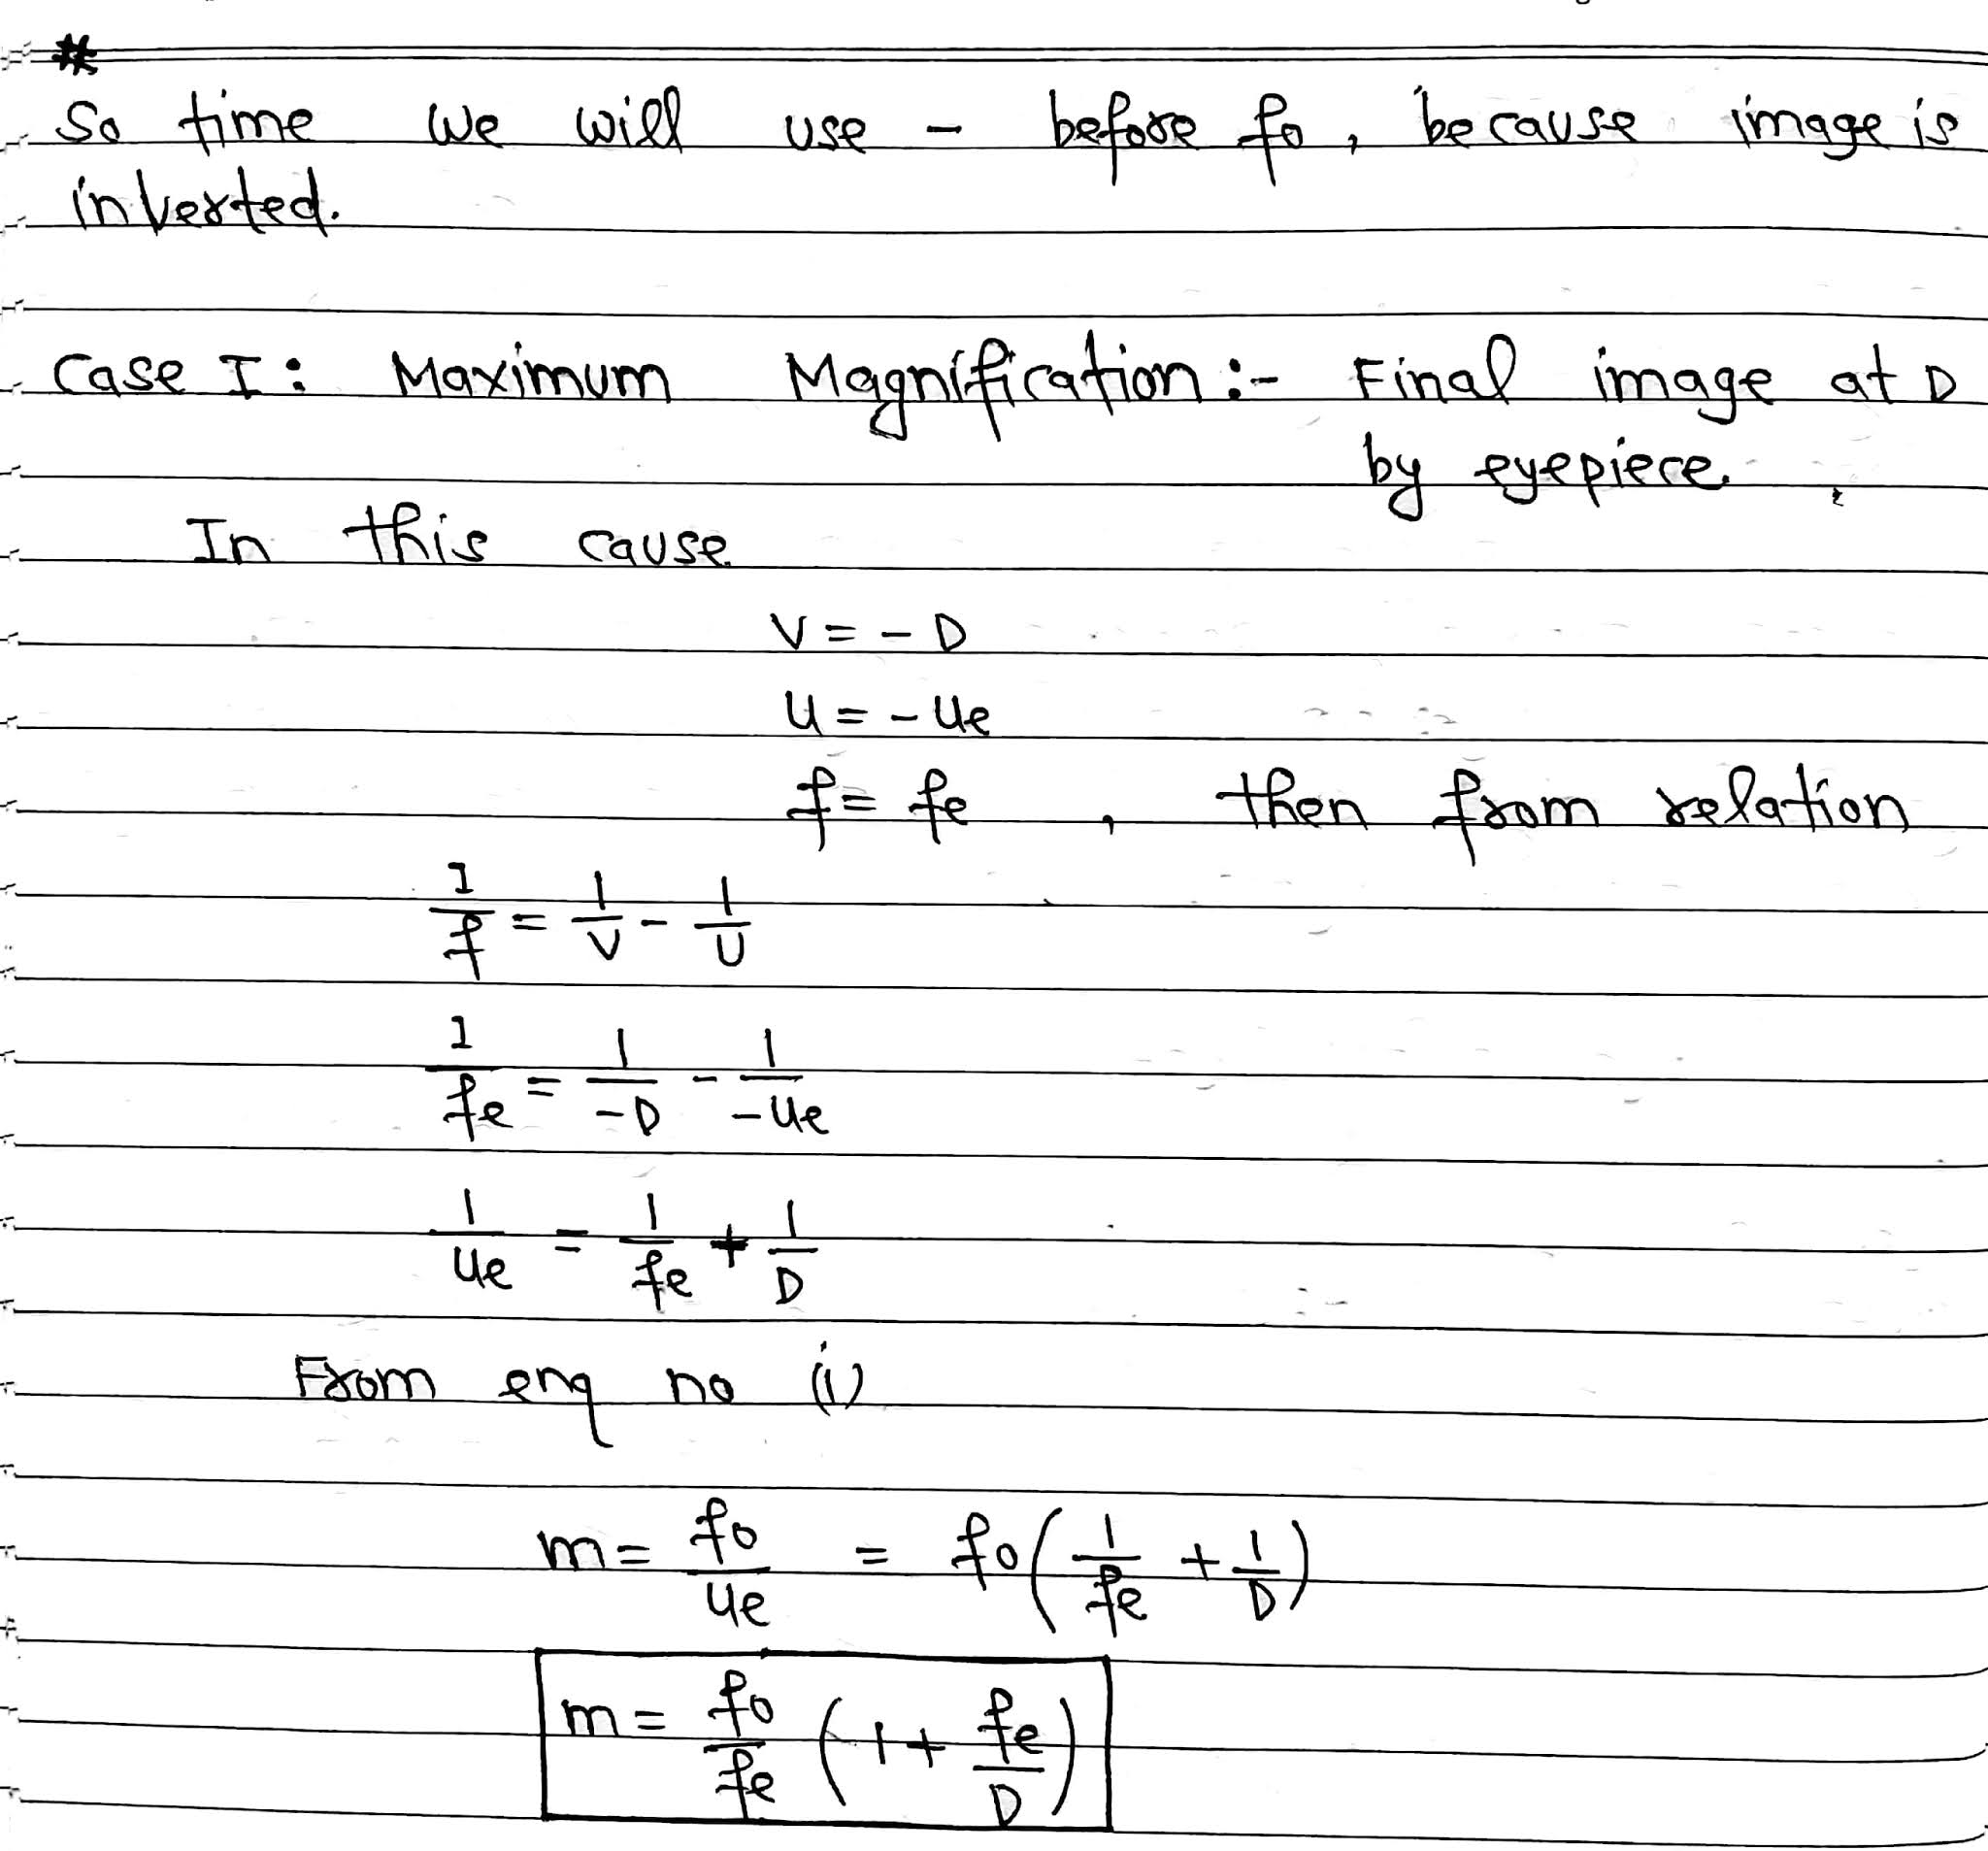 *
So time we will use - before fo, because image is
inverted.
Case I: Maximum Magnification :- Final image at D
by eyepiece.
In this cause
V = - D
u = - ue
f = fe , then from relation
1/f = 1/V - 1/U
1/fe = 1/-D - 1/-ue
1/ue = 1/fe + 1/D
From enq no (i)
m = fo/ue = fo(1/fe + 1/D)
m = fo/fe (1 + fe/D)